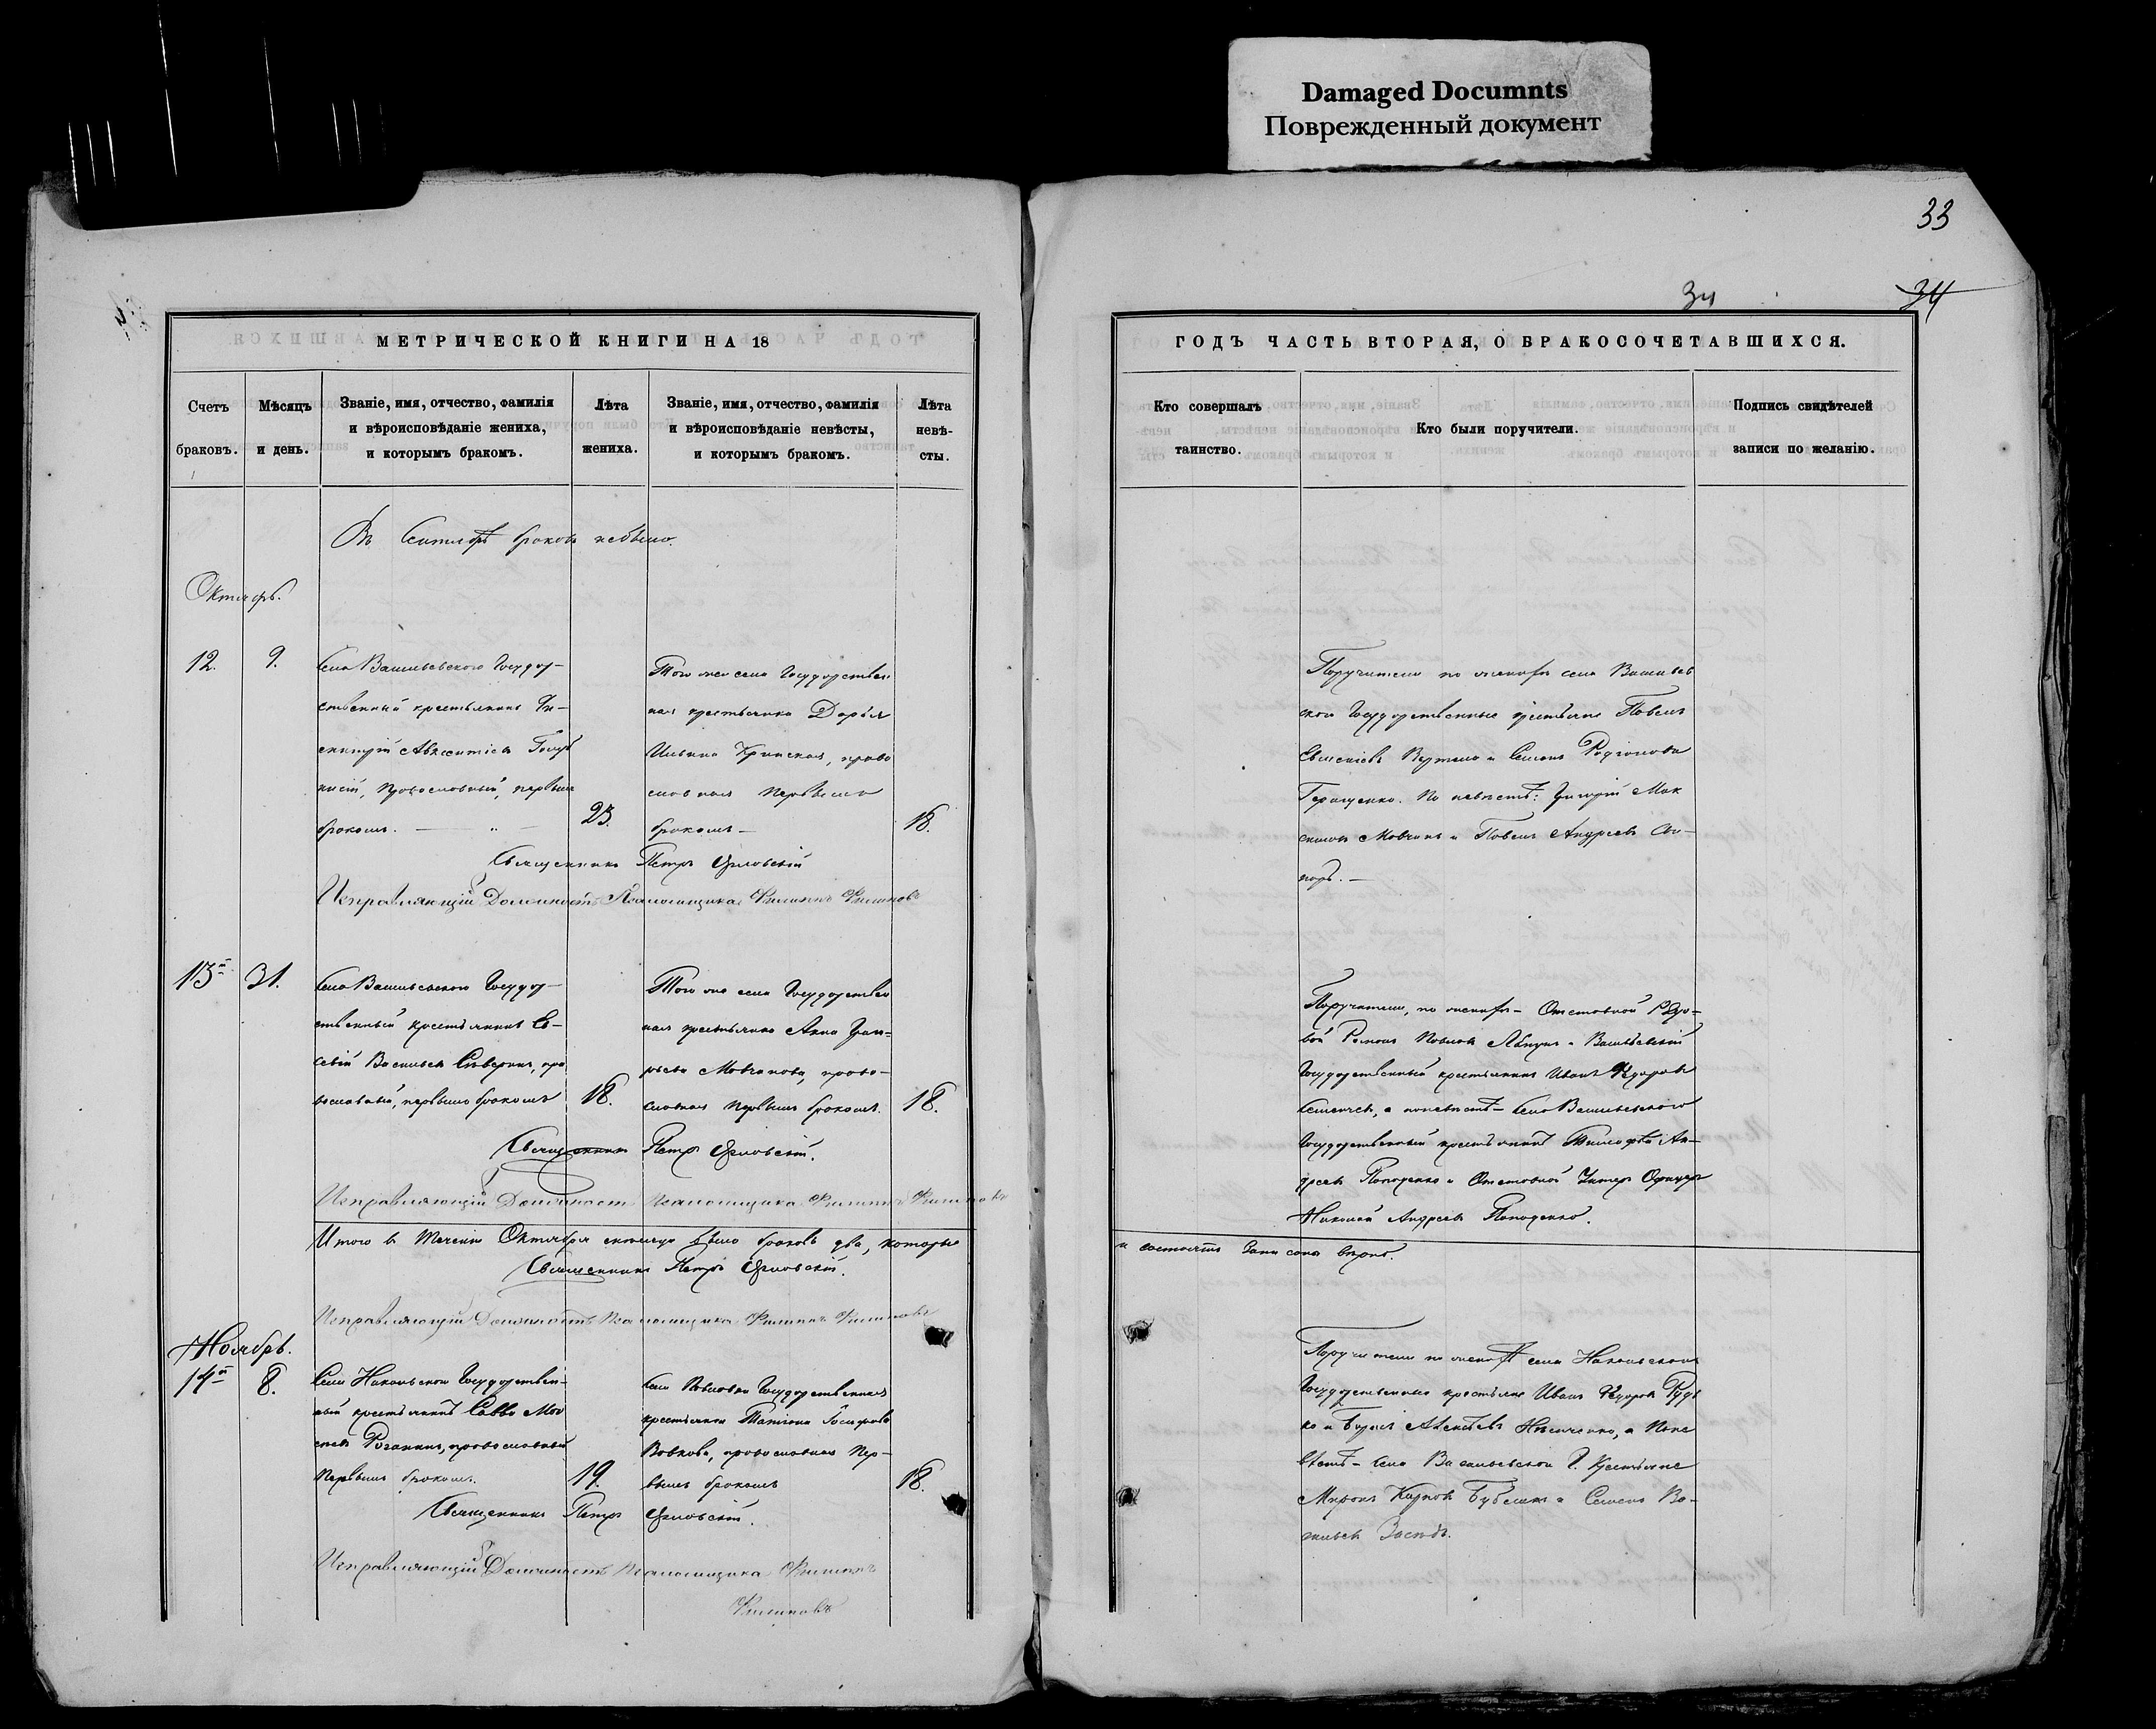 Damaged Documnts
Поврежденный документ
33
34
34
МЕТРИЧЕСКОЙ КНИГИ НА 18
Счетъ браковъ.
Мѣсяцъ и день.
Званіе, имя, отчество, фамилія
и вѣроисповѣданіе жениха,
и которымъ бракомъ.
Лѣта жениха.
Званіе, имя, отчество, фамилія
и вѣроисповѣданіе невѣсты,
и которымъ бракомъ.
Лѣта
невѣ-
сты.
Въ Сентябрѣ браковъ небыло.
Октябрь.
12.
9.
Села Васильевского Государ-
ственный крестьянинъ Ди-
митрій
православный, первымъ
бракомъ.
23.
Того же села Государствен
ная крестьянка Дарья
Ильина Кринская, право
славная первымъ
бракомъ
18.
Священникъ Петръ Орловскій
Исправляющій Должность Псаломщика Филиппъ Филиповъ
13й
31.
Села Васильевского Государ-
ственный крестьянинъ Ев-
севій Васильевъ Сиверинъ, пра
вославный, первымъ бракомъ
18.
Того же села Государствен
ная крестьянка Анна Григо-
рьева Мовчанова, право-
славная первымъ бракомъ.
18.
Священникъ Петръ Орловскій.
Исправляющій Должность Псаломщика Филиппъ Филиповъ
Итого в течение Октября месяца было браковъ два, которые
Священникъ Петръ Орловскій.
Исправляющій Должность Псаломщика Филиппъ Филиповъ
Ноябрь.
14й
8.
Села Никольского Государствен-
ный крестьянинъ Савва Мои
сеевъ православный
первымъ бракомъ.
19.
Села Павловки Государственная
крестьянка Татіана
Вовкова, православная пер-
вымъ бракомъ
18.
Священникъ Петръ Орловскій.
Исправляющій Должность Псаломщика Филиппъ
Филиповъ
ГОДЪ ЧАСТЬ ВТОРАЯ, О БРАКОСОЧЕТАВШИХСЯ.
Кто совершалъ
таинство.
Кто были поручители.
Подпись свидѣтелей
записи по желанію.
Поручители по женихѣ села Васильев
ского Государственные крестьяне Павелъ
и Семенъ Родіоновъ
Геращенко. По невѣстѣ: Григорій Мак
симовъ Мовчанъ и Павелъ Андреевъ
Поручители, по женихѣ - Отставной Рядо-
вой Романъ Павловъ и Васильевскій
Государственный крестьянинъ Иванъ Ѳедоровъ
а по невѣстѣ - Села Васильевского
Государственный крестьянинъ Тимофѣй Ан-
дреевъ Поподенко и Отставной Унтеръ Офицеръ
Николай Андреевъ Поподенко.
и состоятъ записаны верно.
Поручители по женихѣ села Никольского
Государственные крестьяне Иванъ Ѳедоровъ Рудь
ко и Алексѣевъ а по не
вѣстѣ - Села Васильевского Г. Крестьяне
Миронъ Карповъ и Семенъ Ва-
сильевъ